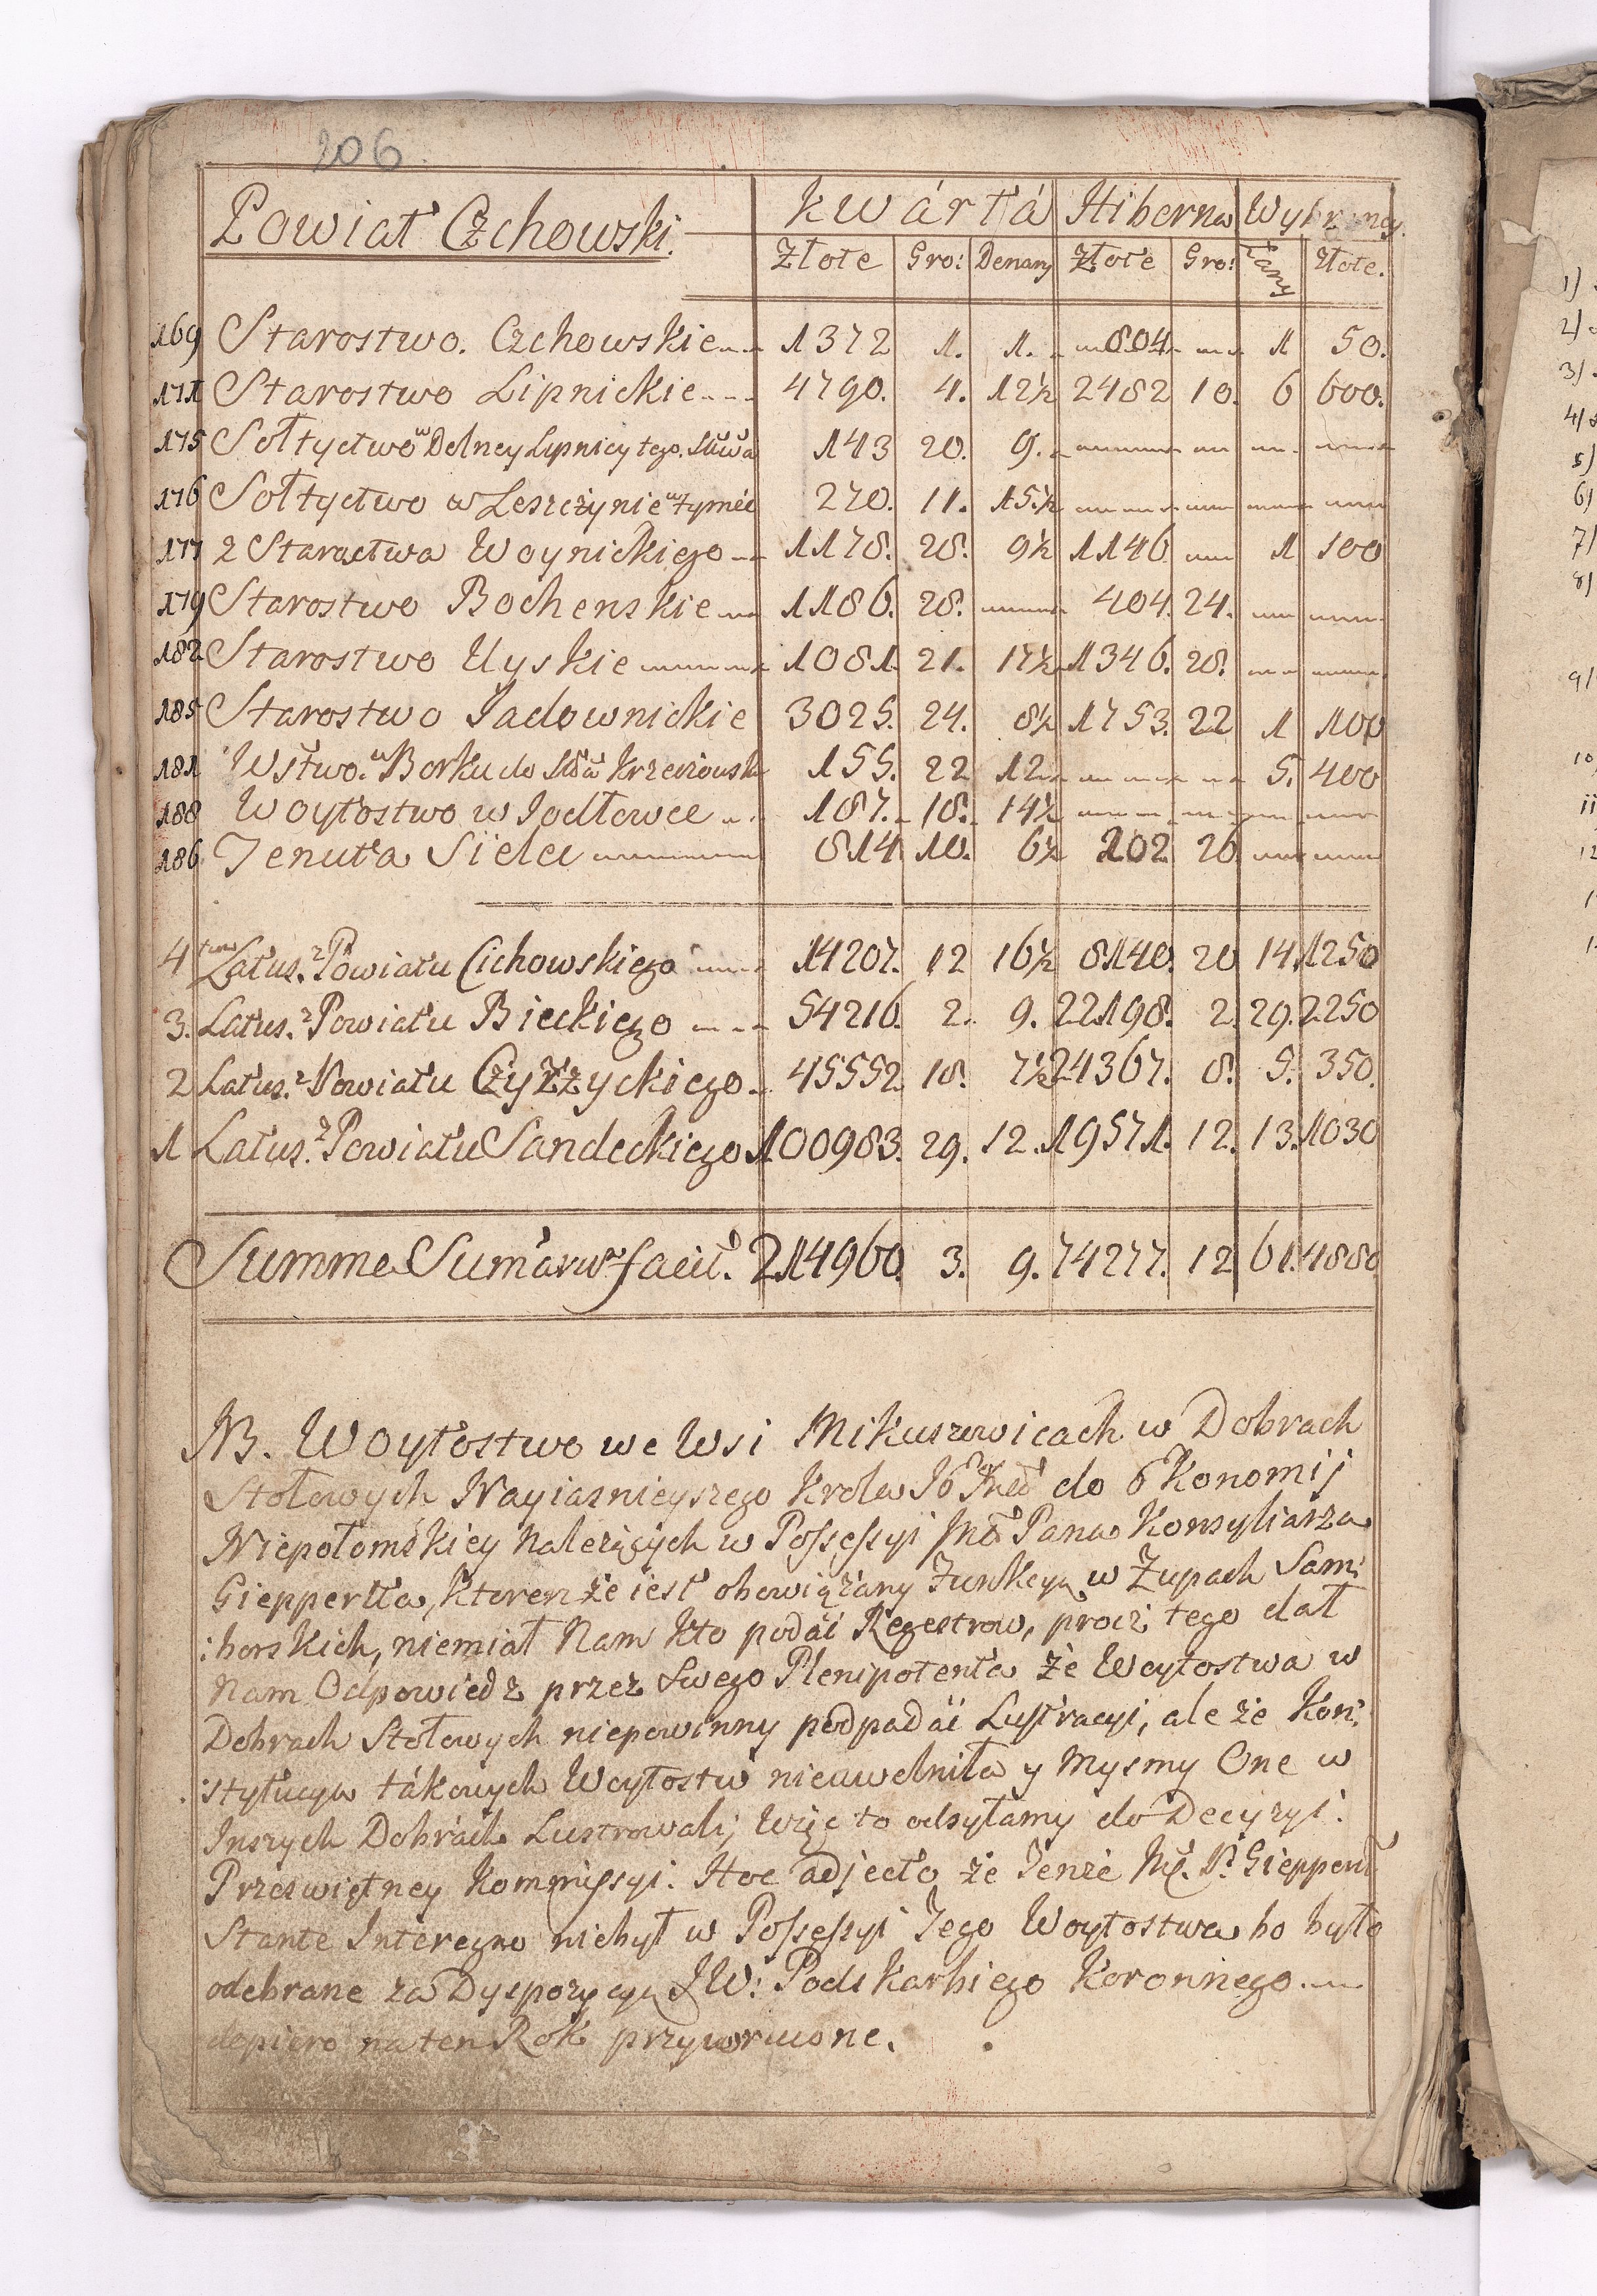 206
Powiat Czchowski. kwárta Hiberna Wybrancy.
Złote Gro: Denary Złote Gro: Łany Złote.
169 Starostwo. Czchowskie 1372 1. 1. 804 1 50.
171 Starostwo Lipnickie 4790. 4. 12½ 2482 10. 6 600.
175 Sołtyctwo w Dolney Lipnicy tego. Stwa 143 20. 9.
176 Sołtyctwo w Leszczynie w tymże 270. 11. 15½
177 2 Starostwa Woynickiego 1178. 28. 9½ 1146 1 100
179 Starostwo Bochenskie 1186. 28. 404. 24.
182 Starostwo Uyskie 1081. 21. 17½ 1346. 28.
185 Starostwo Jadownickie 3025. 24. 8½ 1753. 22 1 100
181 Wstwo. w Borku do Stwa Krzeczowsk 155. 22 12 5. 400
188 Woytostwo w Jodłowce 187. 18. 14½
186 Tenuta Sielec 814 10. 6½ 202 26
4 Latus. z Powiatu Cichowskiego 14207. 12 16½ 8140. 20 14. 1250
3. Latus. z Powiatu Bieckiego 54216. 2. 9. 22198. 2. 29. 2250
2 Latus. z Powiatu Czyżżyckiego 45552 18. 7½ 24367. 8. 5. 350.
1 Latus. z Powiatu Sandeckiego 100983. 29. 12. 19571. 12. 13. 1030
Summa Sumarum facit. 214960. 3. 9. 74277. 12 61. 4880.
NB. Woytostwo we Wsi Mikuszowicach w Dobrach
Stołowych Nayiasnieyszego Krola Jó Mci do Ekonomij
Niepołomskiey należących w Possessyi Jmć Pana Konsyliarza
Giepperta, ktoren że iest obowiązany Funkcyą w Zupach Sam:
:borskich, niemiał Nam kto podać Regestrow, procz tego dał
Nam Odpowiedz przez Swego Plenipotenta że Woytostwa w
Dobrach Stołowych niepowinny podpadać Lustracyi, ale że Kon:
:stytucya tákowych Woytostw nieuwolniła y Mysmy One w
Inszych Dobrách Lustrowali, Więc to odsyłamy do Decyzyi
Przeswiętney Kommissyi. Hoc adjecto że Tenże Mć. P. Giepperᵗ
Stante Interegno niebył w Possessyi Tego Woytostwa bo było
odebrane za Dyspozycyą JW: Podskarbiego Koronnego.
dopiero na ten Rok przywrocone.